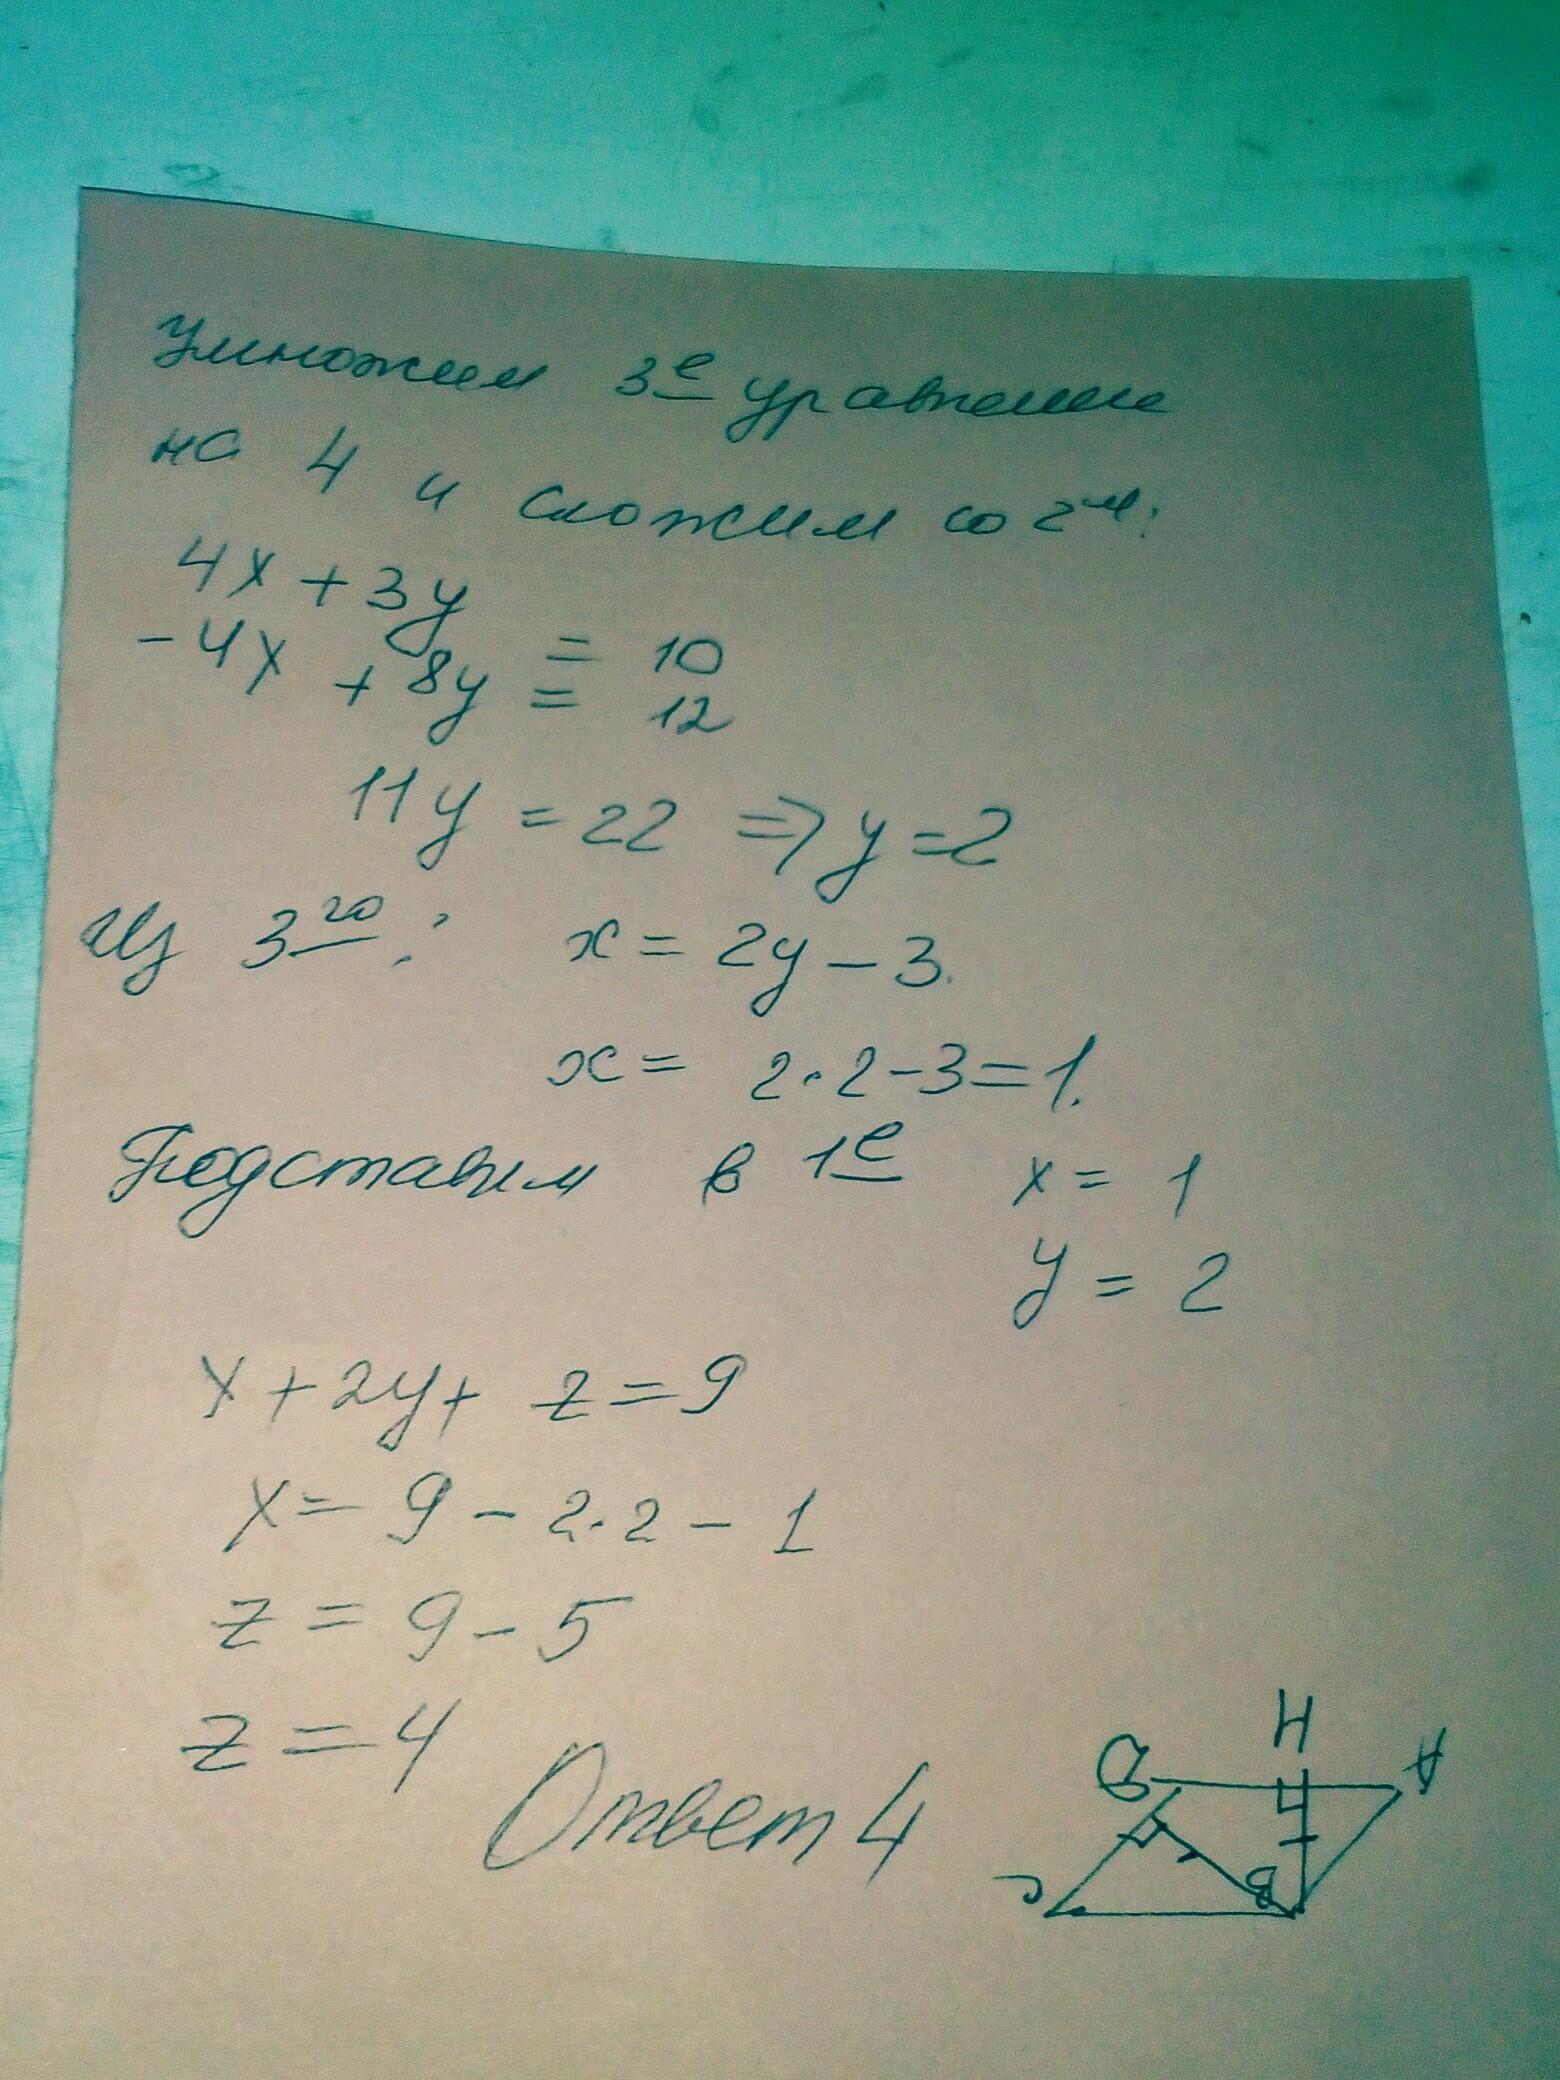 Умножим 3е уравнение
на 4 и сложим со 2м:
4x + 3y = 10
-4x + 8y = 12
11y = 22 => y = 2
Из 3го: x = 2y - 3.
x = 2·2-3=1.
Подставим в 1е x = 1
y = 2
x + 2y + z = 9
x = 9 - 2·2 - 1
z = 9 - 5
z = 4
Ответ 4
H
A
B
C